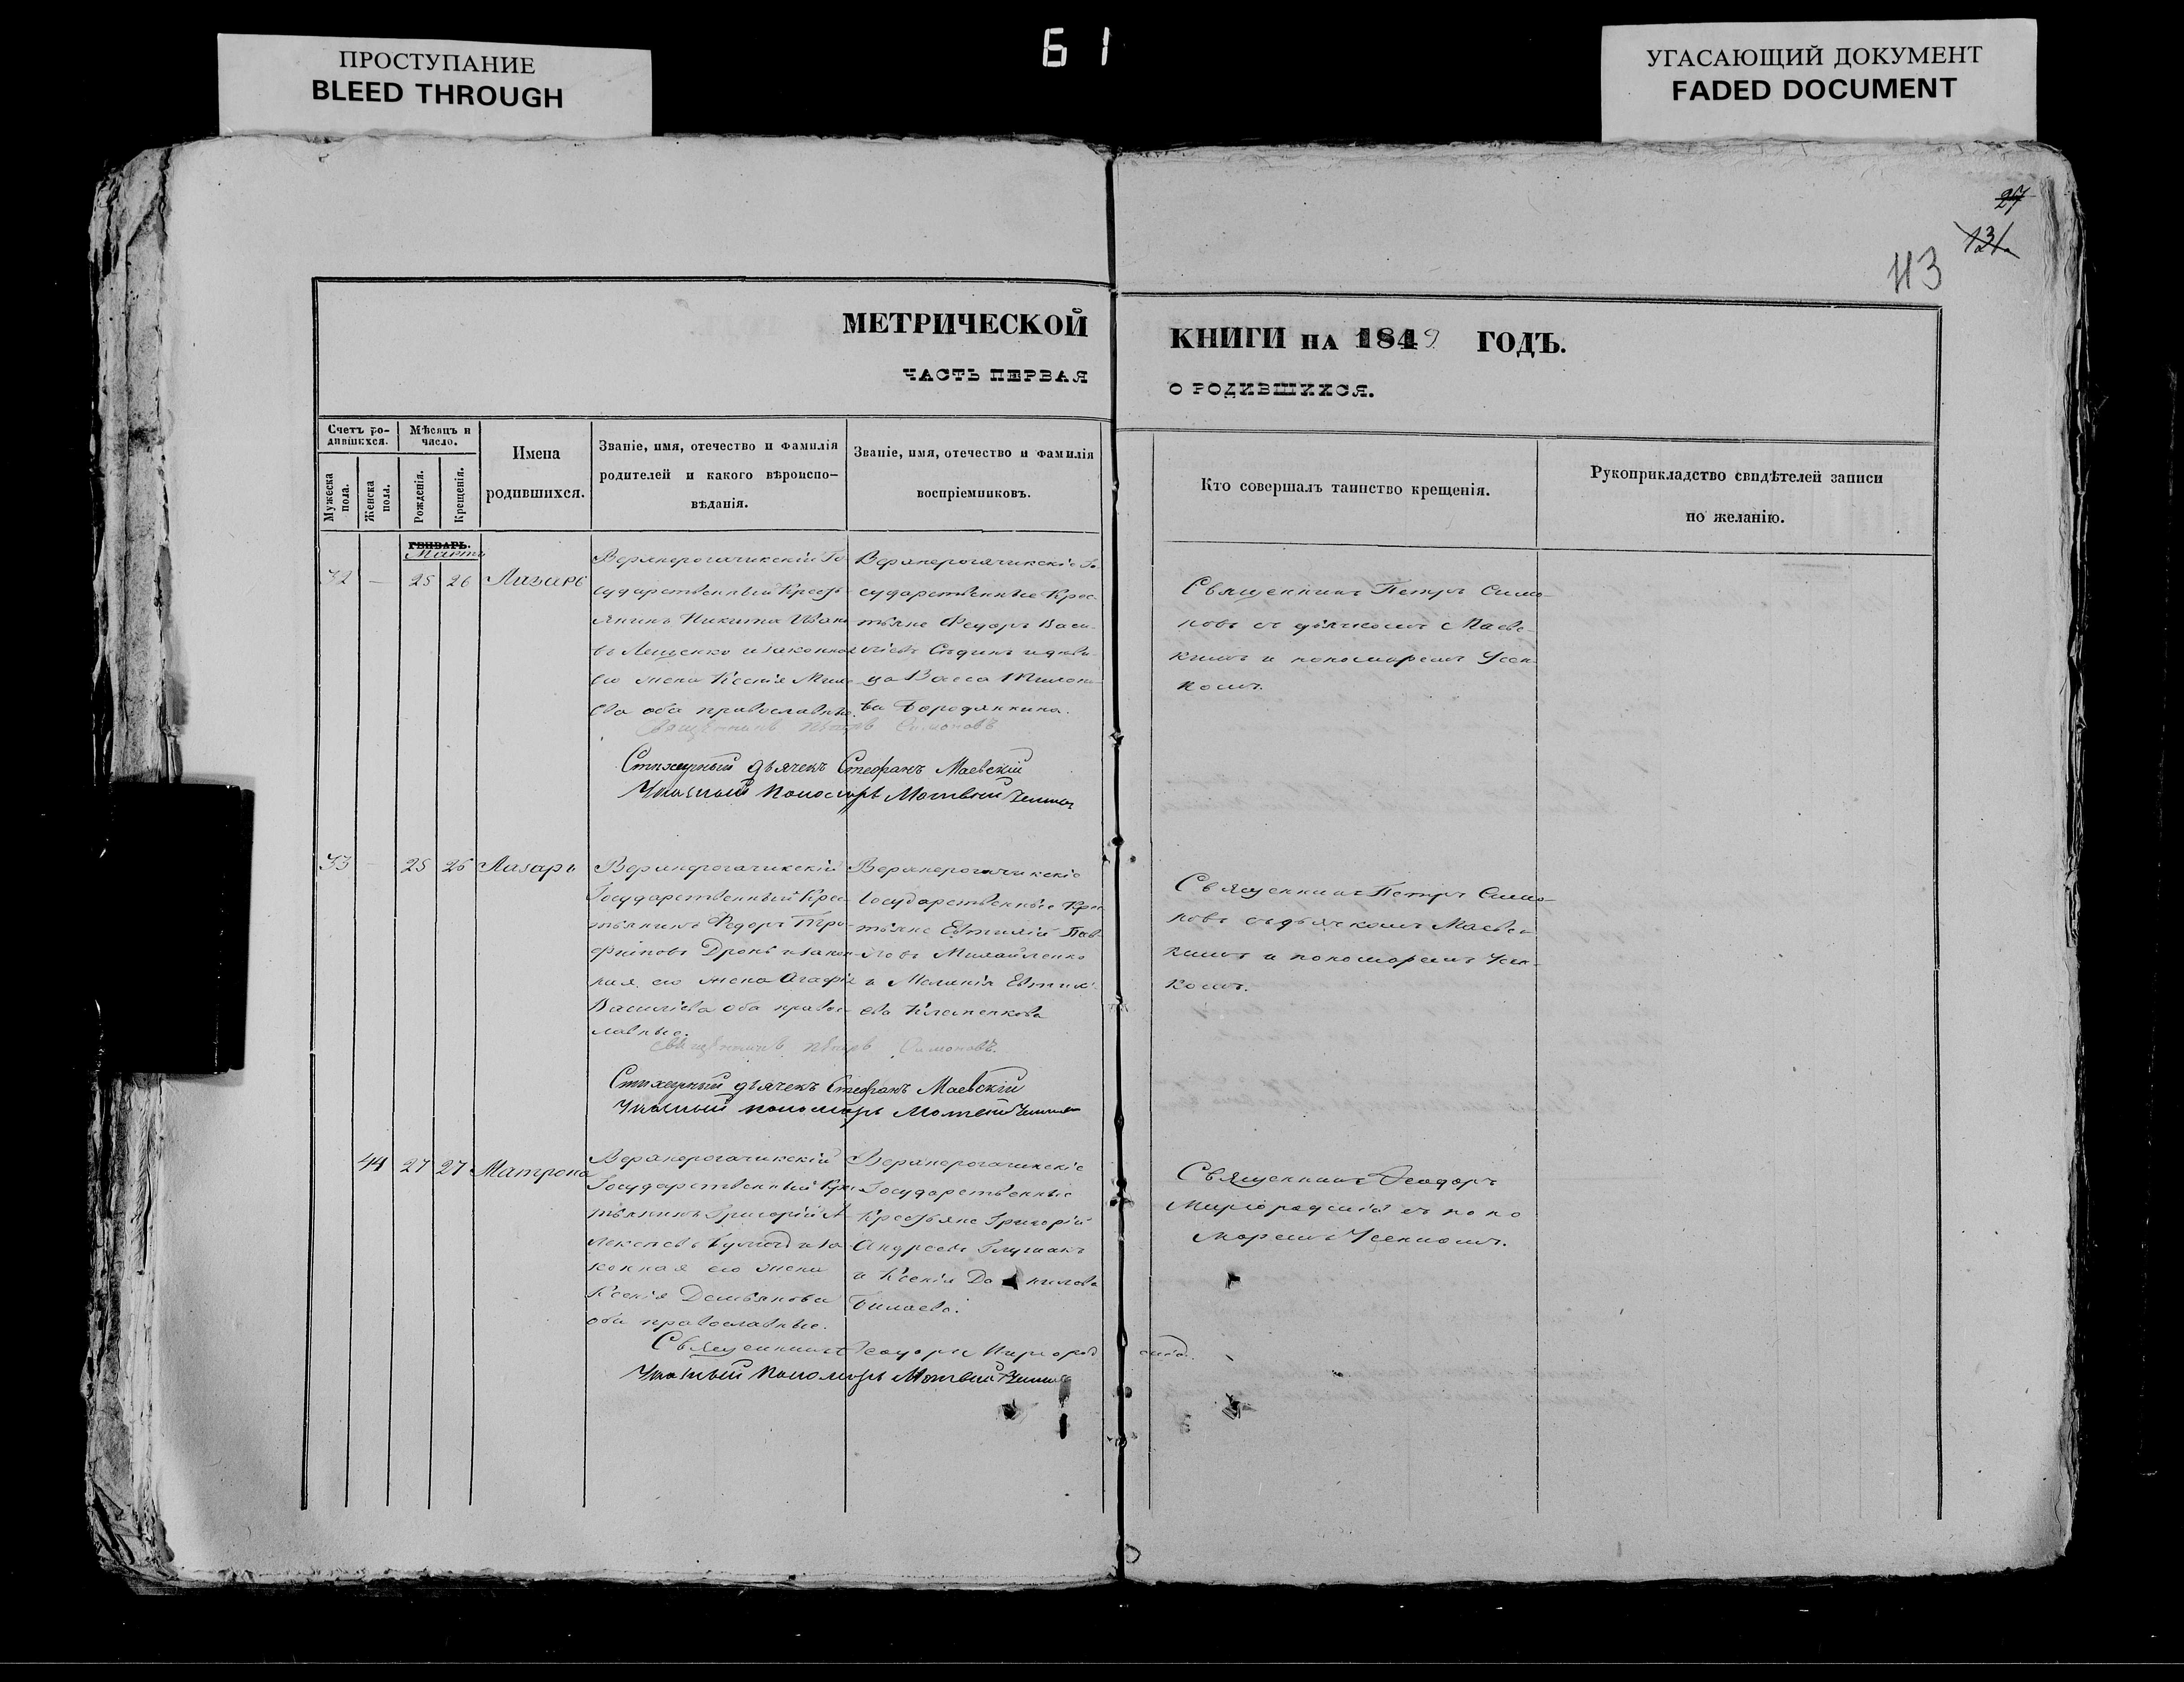 ПРОСТУПАНИЕ
BLEED THROUGH
Б 1
УГАСАЮЩИЙ ДОКУМЕНТ
FADED DOCUMENT
27
131
113
МЕТРИЧЕСКОЙ
КНИГИ НА 1849 ГОДЪ.
ЧАСТЬ ПЕРВАЯ
О РОДИВШИХСЯ.
Счетъ ро-
дившихся.
Мужеска
пола.
Женска
пола.
Мѣсяцъ и
число.
Рожденія.
Крещенія.
Имена
родившихся.
Званіе, имя, отечество и фамилія
родителей и какого вѣроиспо-
вѣданія.
Званіе, имя, отечество и фамилія
воспріемниковъ.
Кто совершалъ таинство крещенія.
Рукоприкладство свидѣтелей записи
по желанію.
ГЕНВАРЬ.
Мартъ
32 — 25 26 Лазарь
Верхнерогачикскій Го-
сударственный Кресть-
янинъ Никита Ивано
въ Лещенко и законная
его жена Ксенія
ева оба православные.
Верхнерогачикскіе Го-
сударственные Крес-
тьяне Федоръ Васи-
ліевъ и дѣви-
ца Васса
ва Бородянкина.
Священникъ Петръ Симо-
новъ съ дьячкомъ Маевс-
кимъ и пономаремъ Усен-
комъ.
Священникъ Петръ Симоновъ
Стихарный дьячекъ Стефанъ Маевскій
Указный Пономарь Матвѣй
33 25 26 Лазарь
Верхнерогачикскій
Государственный Крес-
тьянинъ Федоръ Тро-
фимовъ Дронь и закон-
ная его жена Агафія
Василіева оба правос-
лавные.
Верхнерогачикскіе
Государственные Крес
тьяне Евтихій Пав-
ловъ Михайленко
и Меланія Евтихі-
ева Клименкова
Священникъ Петръ Симо-
новъ съ дьячкомъ Маевс-
кимъ и пономаремъ Усен-
комъ.
Священникъ Петръ Симоновъ.
Стихарный дьячекъ Стефанъ Маевскій
Указный пономарь Матвѣй
44 27 27 Матрона
Верхнерогачикскій
Государственный Крес
тьянинъ Григорій А-
лексѣевъ и за-
конная его жена
Ксенія Демьянова
оба православные.
Верхнерогачикскіе
Государственные
Крестьяне Григорій
Андреевъ Глушакъ
и Ксенія Данилова
Священникъ Феодоръ
Миргородскій съ поно
маремъ Усенкомъ.
Священникъ Феодоръ Миргородскій.
Указный Пономарь Матвѣй